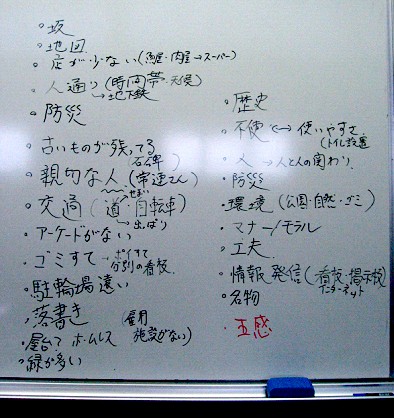 ・坂
・地図
・店が少ない(魚屋・肉屋→スーパー)
・人通り(時間帯・天候)
→地下鉄
・防災
・古いものが残ってる
(石碑)
・親切な人(常連さん)
・交通(道・自転車)
せまい
→出っぱり
・アーケードがない
・ゴミすて→ポイすて
分別の看板
・駐輪場遠い
・落書き
・屋台て ホームレス(雇用
施設がない)
・緑が多い
・歴史
・不便←→使いやすさ
(トイレ設置)
・人→人と人の関わり
・防災
・環境(公園・自然・ゴミ)
・マナー/モラル
・工夫
・情報発信(看板・掲示板)
インターネット
・名物
・五感